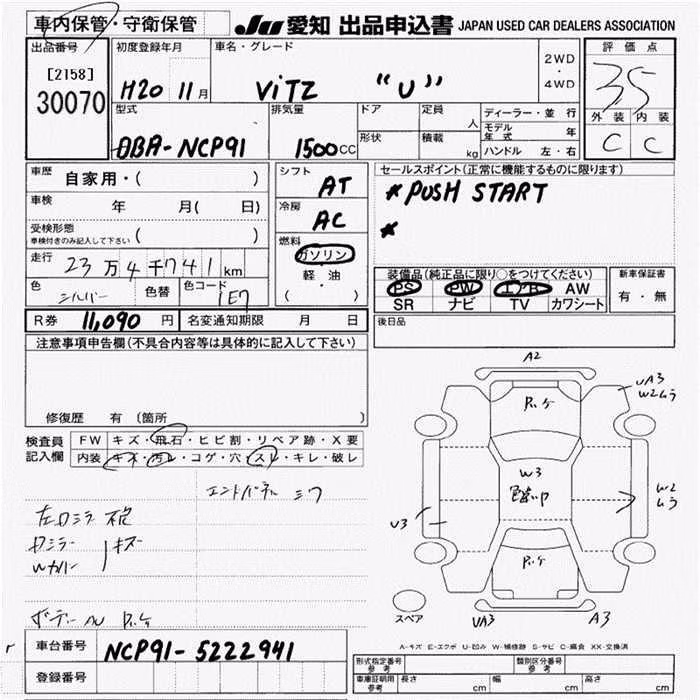 車内保管・守衛保管 JU 愛知 出品申込書 JAPAN USED CAR DEALERS ASSOCIATION
出品番号 初度登録年月 車名・グレード 2WD・4WD 評価点
[2158]
30070 H20 11月 ViTZ "U" 35
型式 排気量 ドア 定員 人 ディーラー・並行 外装 内装
モデル年式 年
DBA-NCP91 1500CC 形状 積載 kg ハンドル 左・右 C C
車歴 自家用・( ) シフト AT セールスポイント(正常に機能するものに限ります)
*PUSH START
車検 年 月( 日) 冷房 AC
*
受検形態 車検付きのみ記入して下さい ( ) 燃料 ガソリン
走行 23万4千741km 軽・油 装備品(純正品に限り○をつけてください) 新車保証書
色 シルバー 色替 色コード 1E7 ( ) PS PW エアB AW 有・無
SR ナビ TV カワシート
R券 11,090円 名変通知期限 月 日 後日品
注意事項申告欄(不具合内容等は具体的に記入して下さい)
A2
UA3
W2ムラ
P.ヶ
修復歴 有 (箇所 )
検査員記入欄 FW キズ・飛石・ヒビ割・リペア跡・X要
内装 キズ・汚レ・コゲ・穴・スレ・キレ・破レ
W3
W2ムラ
エンドパネル シワ
左ロミラー
ロミラー キズ
Wカバー
U3
P.ヶ
スペア UA3 A3
P.ヶ
車台番号 NCP91-5222941
A-キズ E-エクボ U-凹み W-補修跡 S-サビ C-腐食 XX-交換済
登録番号
形式指定番号 参考 類別区分番号 参考
車庫証明用 参考 長さ cm 幅 cm 高さ cm